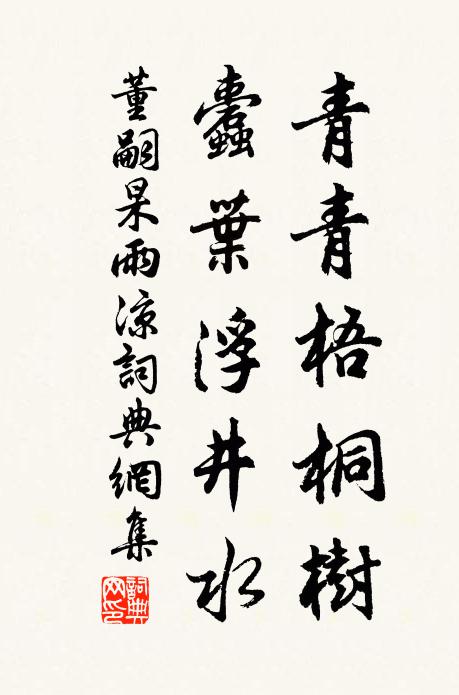 青青梧桐樹
蠹葉浮井水
董嗣杲雨凉詞典網集
詞典網印